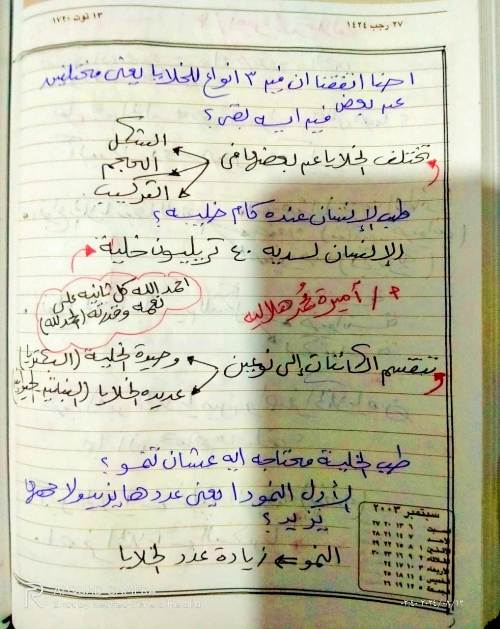 ٢٧ رجب ١٤٢٤
١٣ توت ١٧٢٠
احنا اتفقنا ان فيه ٣ أنواع للخلايا يعنى مختلفين
عن بعض فيه ايه بقى؟
تختلف الخلايا عن بعضها فى
الشكل
الحجم
التركيب
طب الإنسان عنده كام خلية؟
الإنسان لديه ٤٠ تريليون خلية
احمد الله كل ثانية على
نعمه وقدرته (الحمد لله)
أميرة محمد هلالية
تنقسم الكائنات إلى نوعين
وحيدة الخلية (البكتريا)
عديدة الخلايا
طب الخلية محتاجه ايه عشان تنمو؟
الأول النمو دا يعنى عددها يزيد ولا حجمها
يزيد؟
النمو ⇐ زيادة عدد الخلايا
سبتمبر ٢٠٠٣